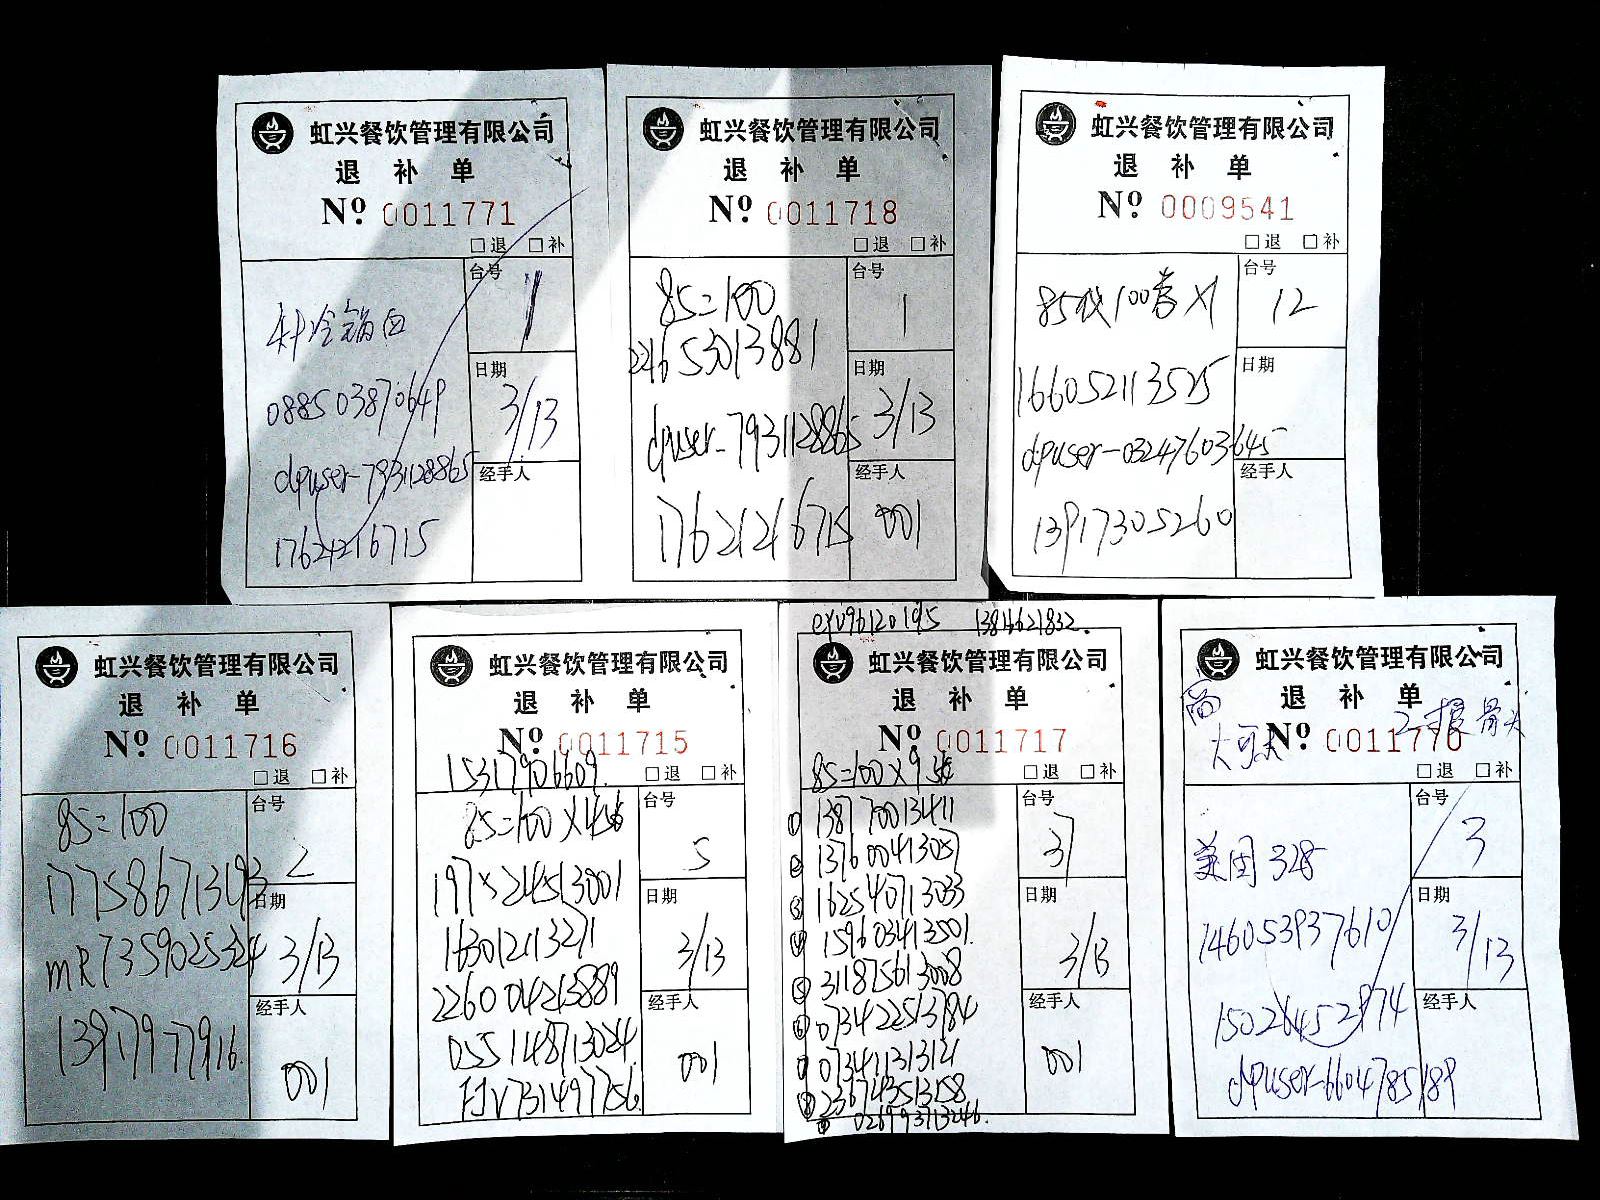 虹兴餐饮管理有限公司
退 补 单
Nº 0011771
□退 □补
台号
1
088503870649
日期
3/13
dpuser-7931128865
经手人
17621216715
虹兴餐饮管理有限公司
退 补 单
Nº 0011718
□退 □补
85=100
台号
1
224653013881
日期
3/13
dpuser-7931128865
经手人
001
17621216715
虹兴餐饮管理有限公司
退 补 单
Nº 0009541
□退 □补
85代100券×1
台号
12
166052113525
日期
dpuser-03247603645
经手人
13917305260
虹兴餐饮管理有限公司
退 补 单
Nº 0011716
□退 □补
85=100
台号
2
日期
3/13
mR7359025324
经手人
13917977916.
001
虹兴餐饮管理有限公司
退 补 单
Nº 0011715
□退 □补
15317906609.
85=100
台号
5
197524513001
日期
3/13
163012113271
226004213889
经手人
055148713024
001
FJV731497756.
13816621832.
虹兴餐饮管理有限公司
退 补 单
Nº 0011717
□退 □补
85=100×9
台号
37
① 138170013411
② 137600413057
③ 162540713033
日期
3/13
④ 159603413501.
⑤ 311875613008
⑥ 073422513184
经手人
⑦ 073411313121
001
⑧ 236743513158
⑨ 026993713246.
虹兴餐饮管理有限公司
退 补 单
2根骨头
Nº 0011770
□退 □补
台号
3
美团 328
日期
3/13
146053937610
经手人
15026452974
dpuser-6604785189